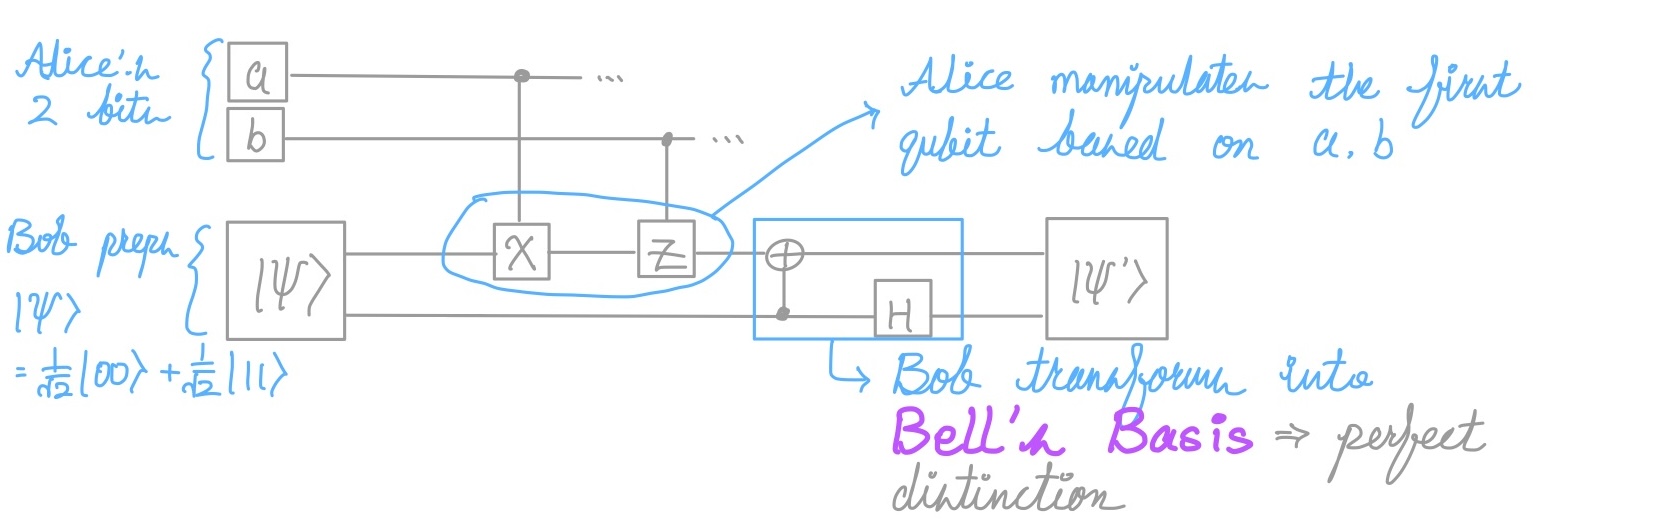 Alice's
2 bits
a
b
...
...
Alice manipulates the first
qubit based on a, b
Bob preps
|ψ⟩
= 1/√2 |00⟩ + 1/√2 |11⟩
|ψ⟩
X
Z
H
|ψ'⟩
Bob transforms into
Bell's Basis ⇒ perfect
distinction